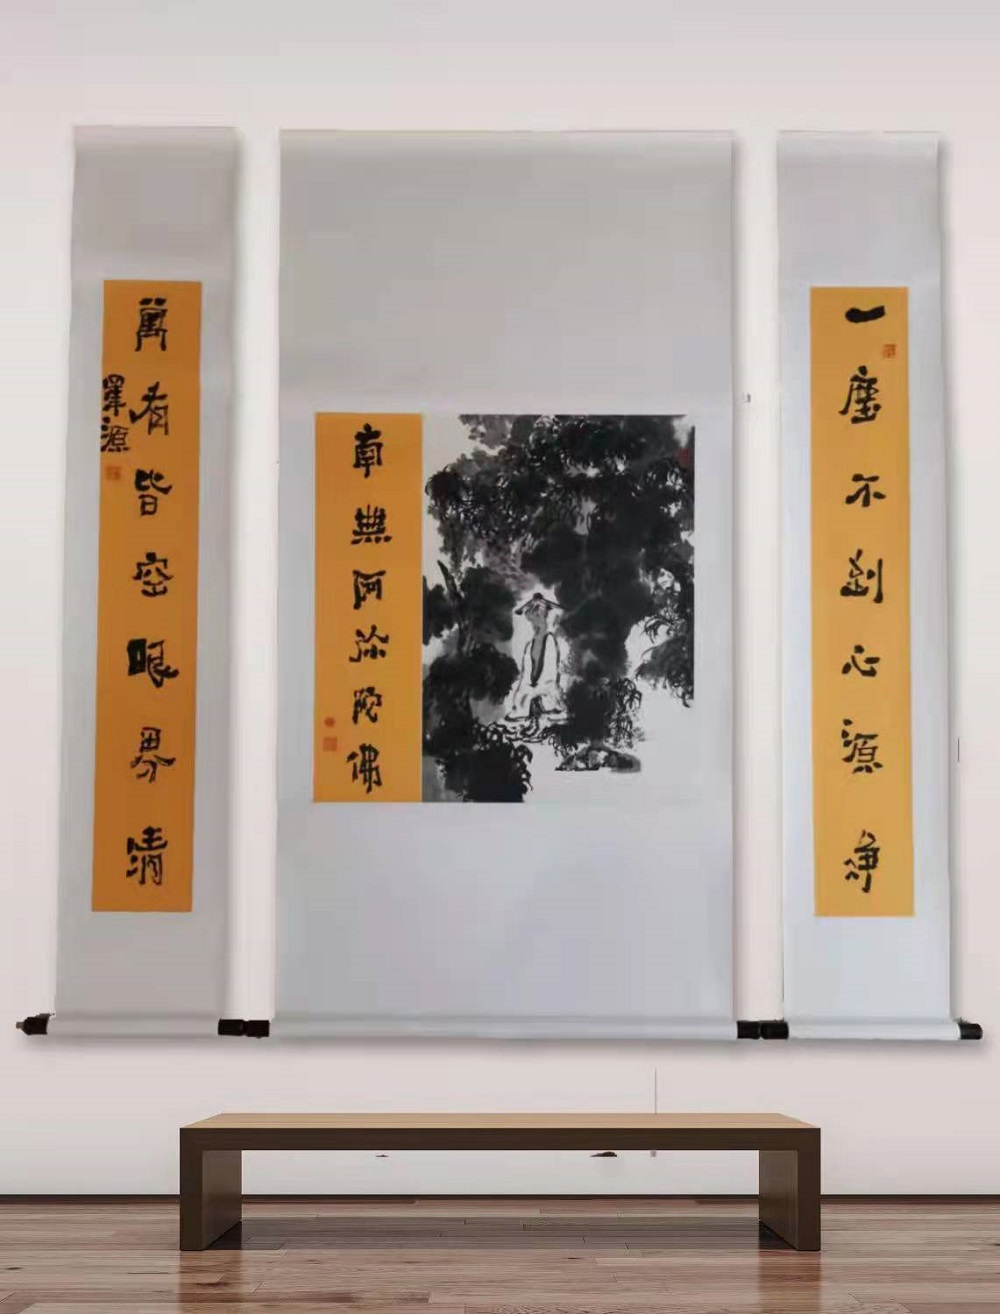 一塵不到心源淨
南無阿弥陀佛
萬有皆空眼界清